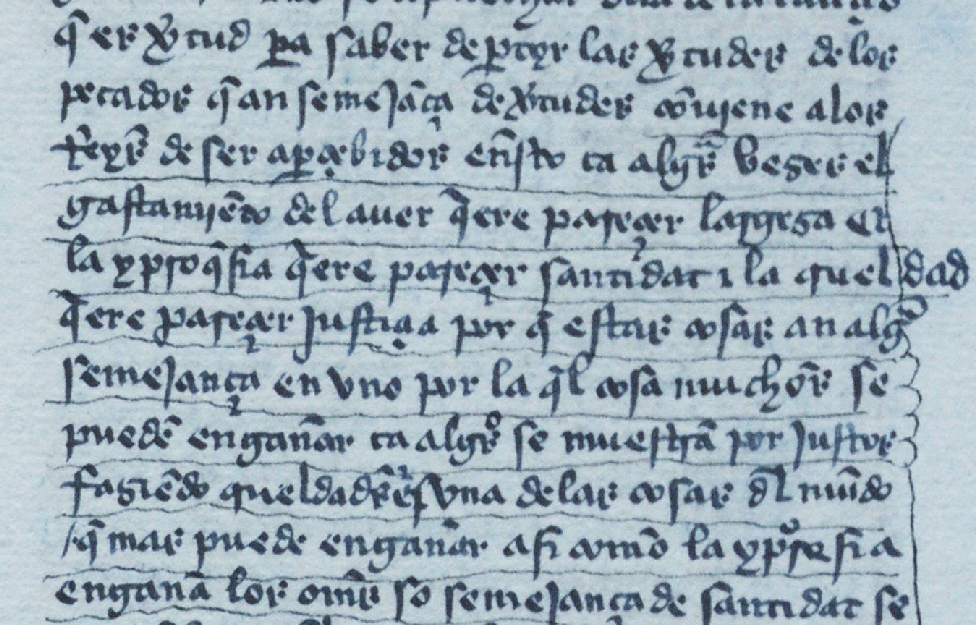 q̃ es v̾tud pa saber departyr las v̾tudes de los
pecados q̃ an semejãça de v̾tudes cõviene a los
Reys̃ de ser aperçebidos en̄sto ca algũs veses el
gastamiẽto del aver q̃ere paresçer largesa et
la yprocq̃sia q̃ere paresçer santidat i la crueldad
q̃ere paresçer justiçia por q̃ estas cosas an algũa
semejança en uno por la q̃l cosa muchos̃ se
puedẽ engañar ca algũos se muestrã por justos
fasiẽdo crueldades̃ una de las cosas dl̃ mũdo
q̃ mas puede engañar asi como la yprocresia
engaña los oms̃ so semejança de santidat se